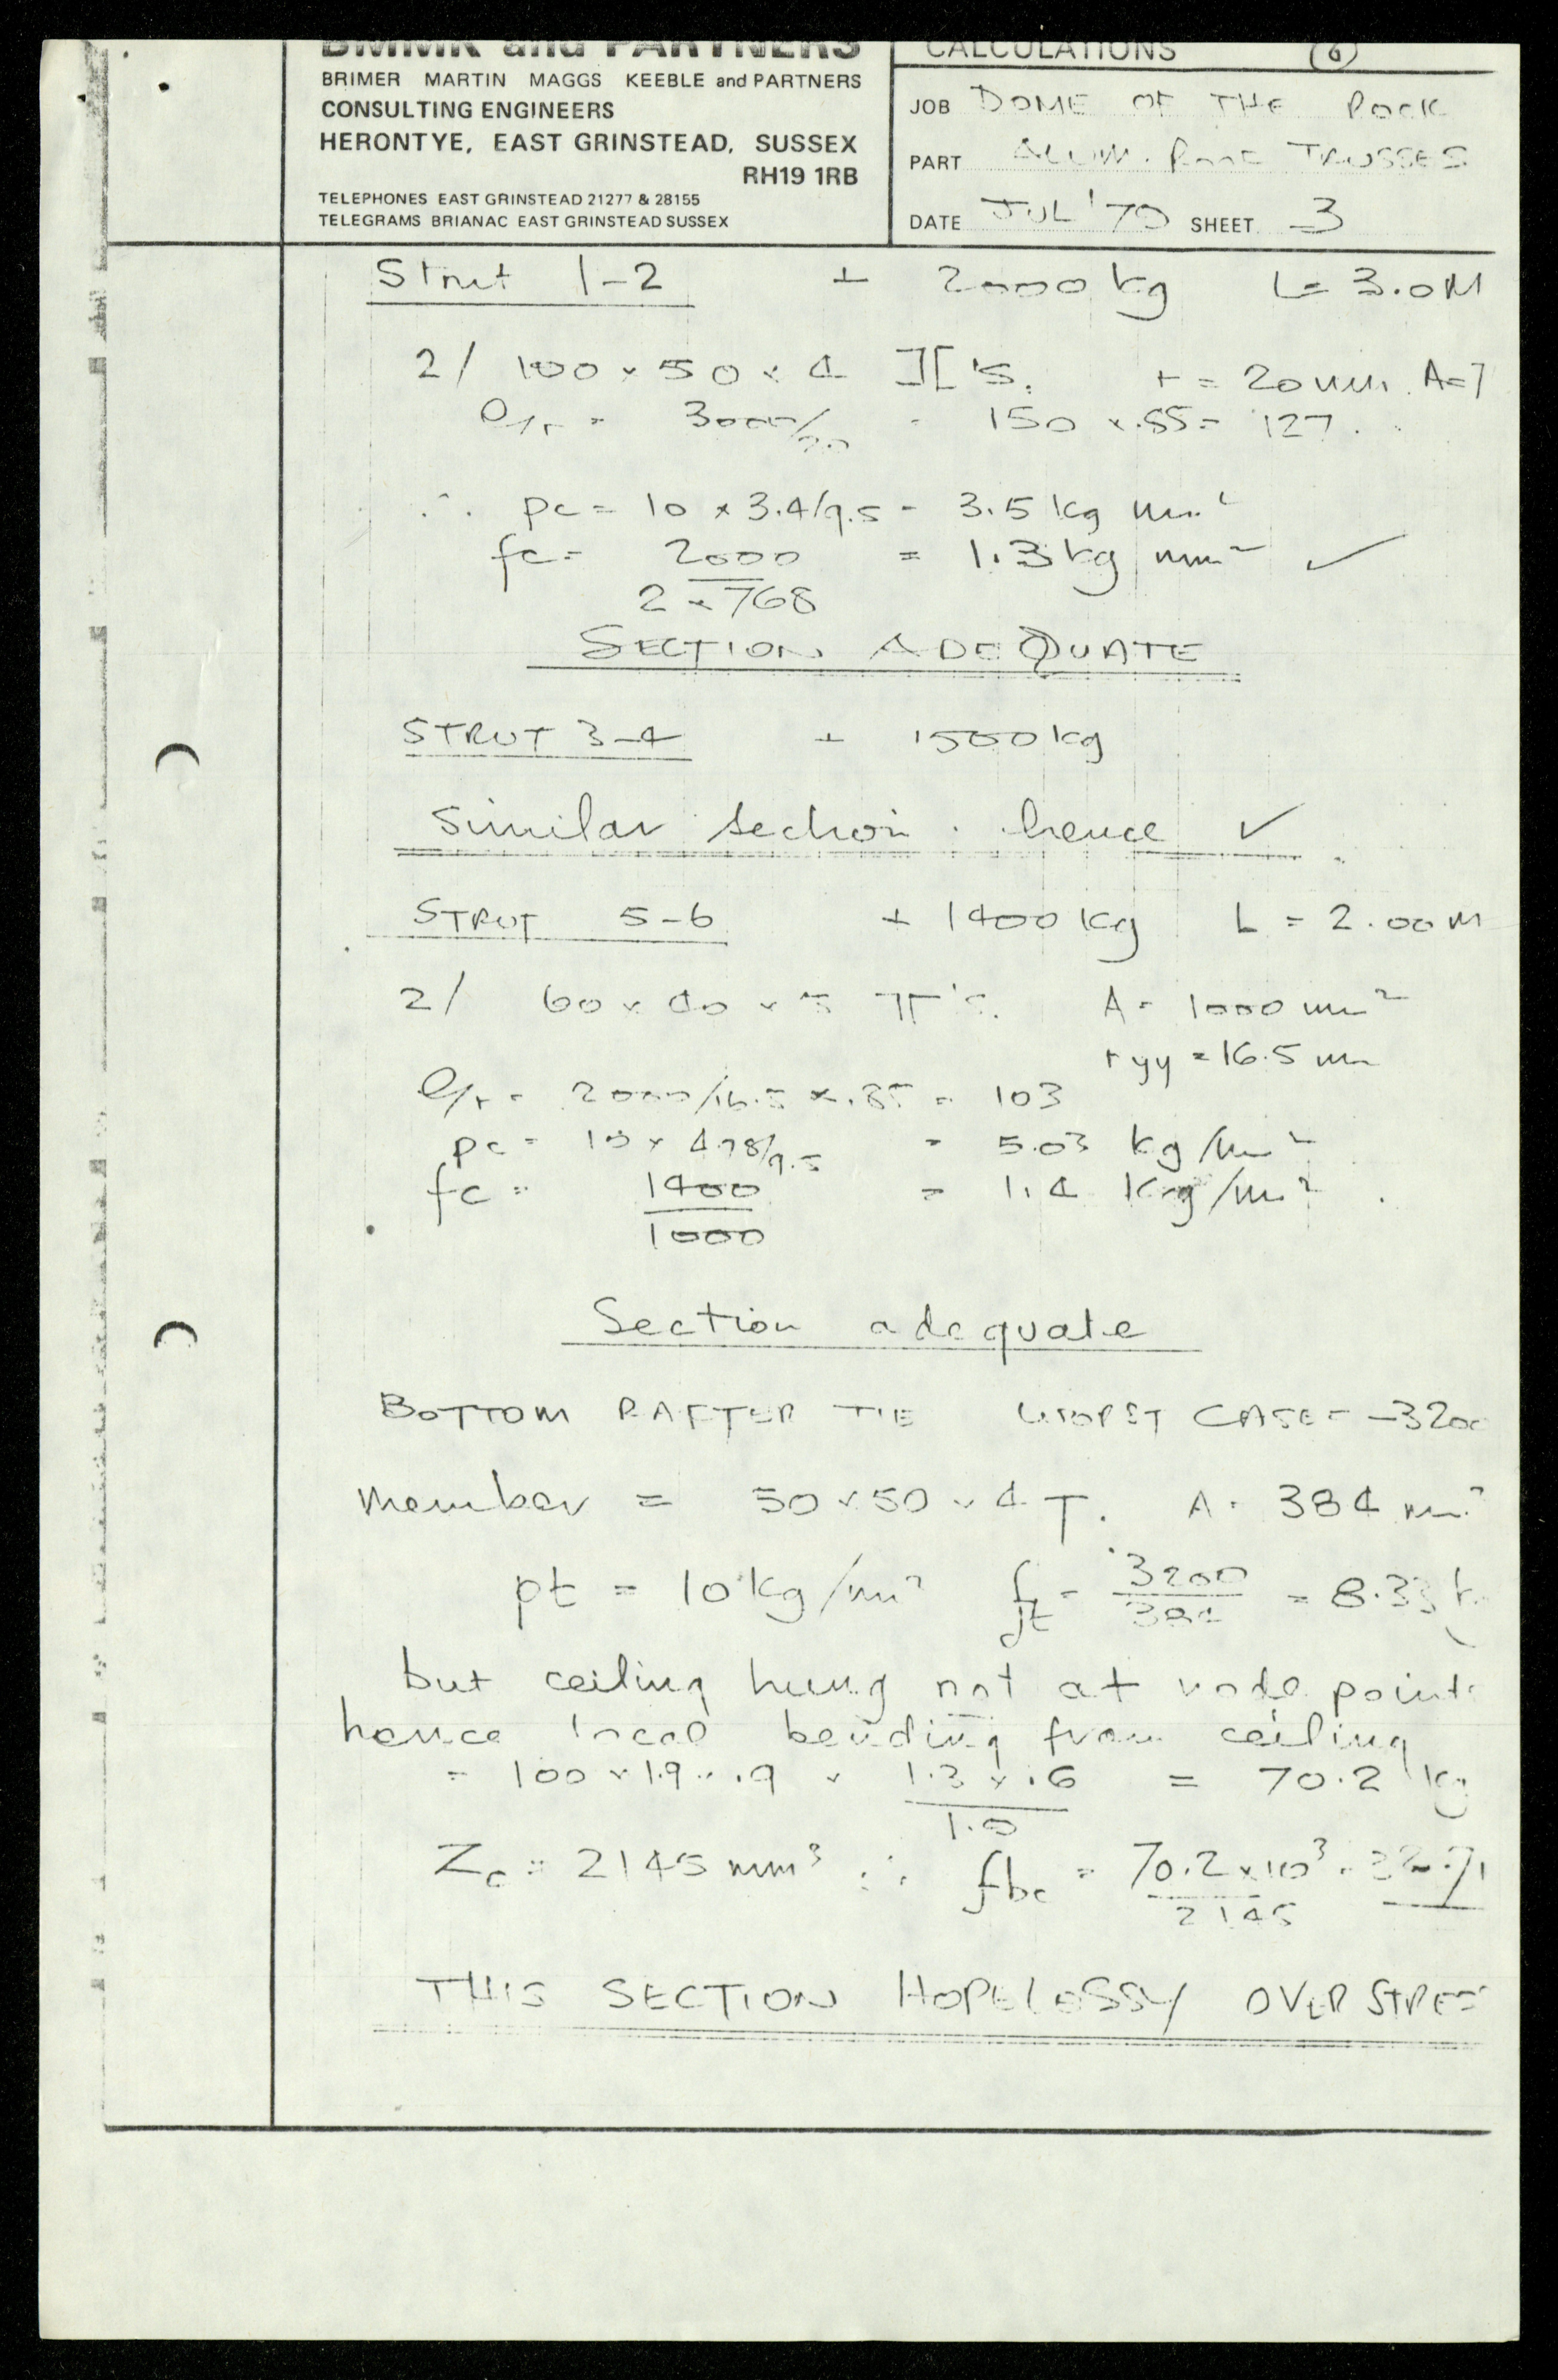 BMMK and PARTNERS
BRIMER MARTIN MAGGS KEEBLE and PARTNERS
CONSULTING ENGINEERS
HERONTYE, EAST GRINSTEAD, SUSSEX
RH19 1RB
TELEPHONES EAST GRINSTEAD 21277 & 28155
TELEGRAMS BRIANAC EAST GRINSTEAD SUSSEX
CALCULATIONS 6
JOB DOME OF THE ROCK
PART ALUM. ROOF TRUSSES
DATE JUL '79 SHEET 3
Strut 1-2 + 2000 kg L = 3.0M
2/ 100 x 50 x 4 ][ 'S. r = 20 mm. A=7
l/r = 3000/20 = 150 x .85 = 127.
∴ pc = 10 x 3.4/9.5 = 3.5 kg mm²
fc = 2000 = 1.3 kg mm² ✓
2 x 768
SECTION ADEQUATE
STRUT 3-4 + 1500 kg
Similar section . hence ✓
STRUT 5-6 + 1400 kg L = 2.00M
2/ 60 x 40 x 5 ⅂Γ's. A = 1000 mm²
ryy = 16.5 mm
l/r = 2000/16.5 x .85 = 103
pc = 10 x 4.78/9.5 = 5.03 kg/mm²
fc = 1400 = 1.4 kg/mm²
1000
Section adequate
BOTTOM RAFTER TIE WORST CASE = -3200
Member = 50 x 50 x 4 T. A = 384 mm²
pt = 10 kg/mm² ft = 3200 = 8.33 k
384
but ceiling hung not at node points
hence local bending from ceiling
= 100 x 1.9 x .9 x 1.3 x .6 = 70.2 kg
Zc = 2145 mm³ ∴ fbc = 70.2 x 10³
2145
THIS SECTION HOPELESSY OVERSTRES